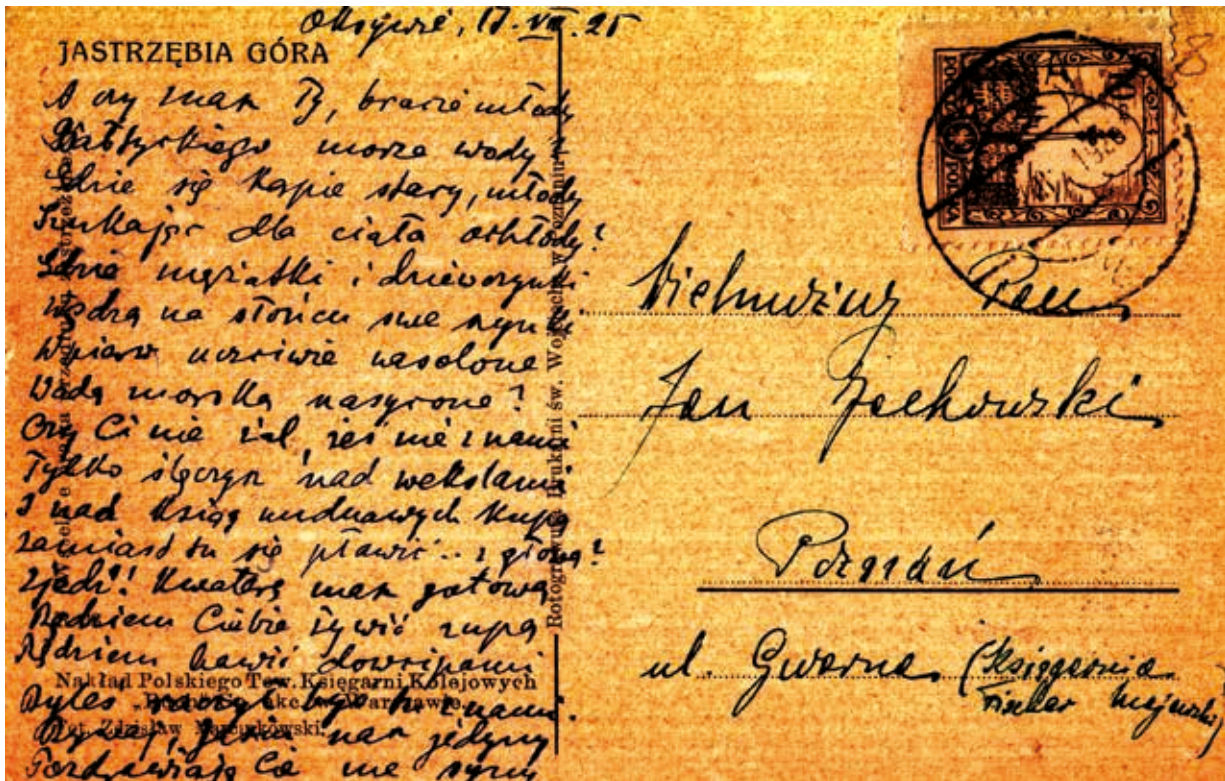 Oksywie, 17.VII.25
JASTRZĘBIA GÓRA
A czy znasz Ty, bracie młody
Bałtyckiego morza wody?
Gdzie się kąpie stary, młody
Szukając dla ciała ochłody?
Gdzie mężatki i dzieweczynki
na słońcu swe
uczciwie
Wodą morską nasycone?
Czy Ci nie żal, żeś nie z nami
Tylko ślęczysz nad wekslami
I nad ksiąg nudnawych kupą
Zamiast tu się pławić .. z
Zjedź! Kwaterę masz gotową
Będziem Ciebie żywić zupą
Będziem bawić dowcipami
Byłeś był tu z nami.
nasz jedyny
Pozdrawiają Cię
Nakład Polskiego Tow. Księgarni Kolejowych
Fot. Zdzisław Marcinkowski.
Rotograwura Drukarni św. Wojciecha w Poznaniu
Wielmożny Pan
Jan Żochowski
Poznań
ul. Gwarna (Księgarnia
Fischer Majewski)
8